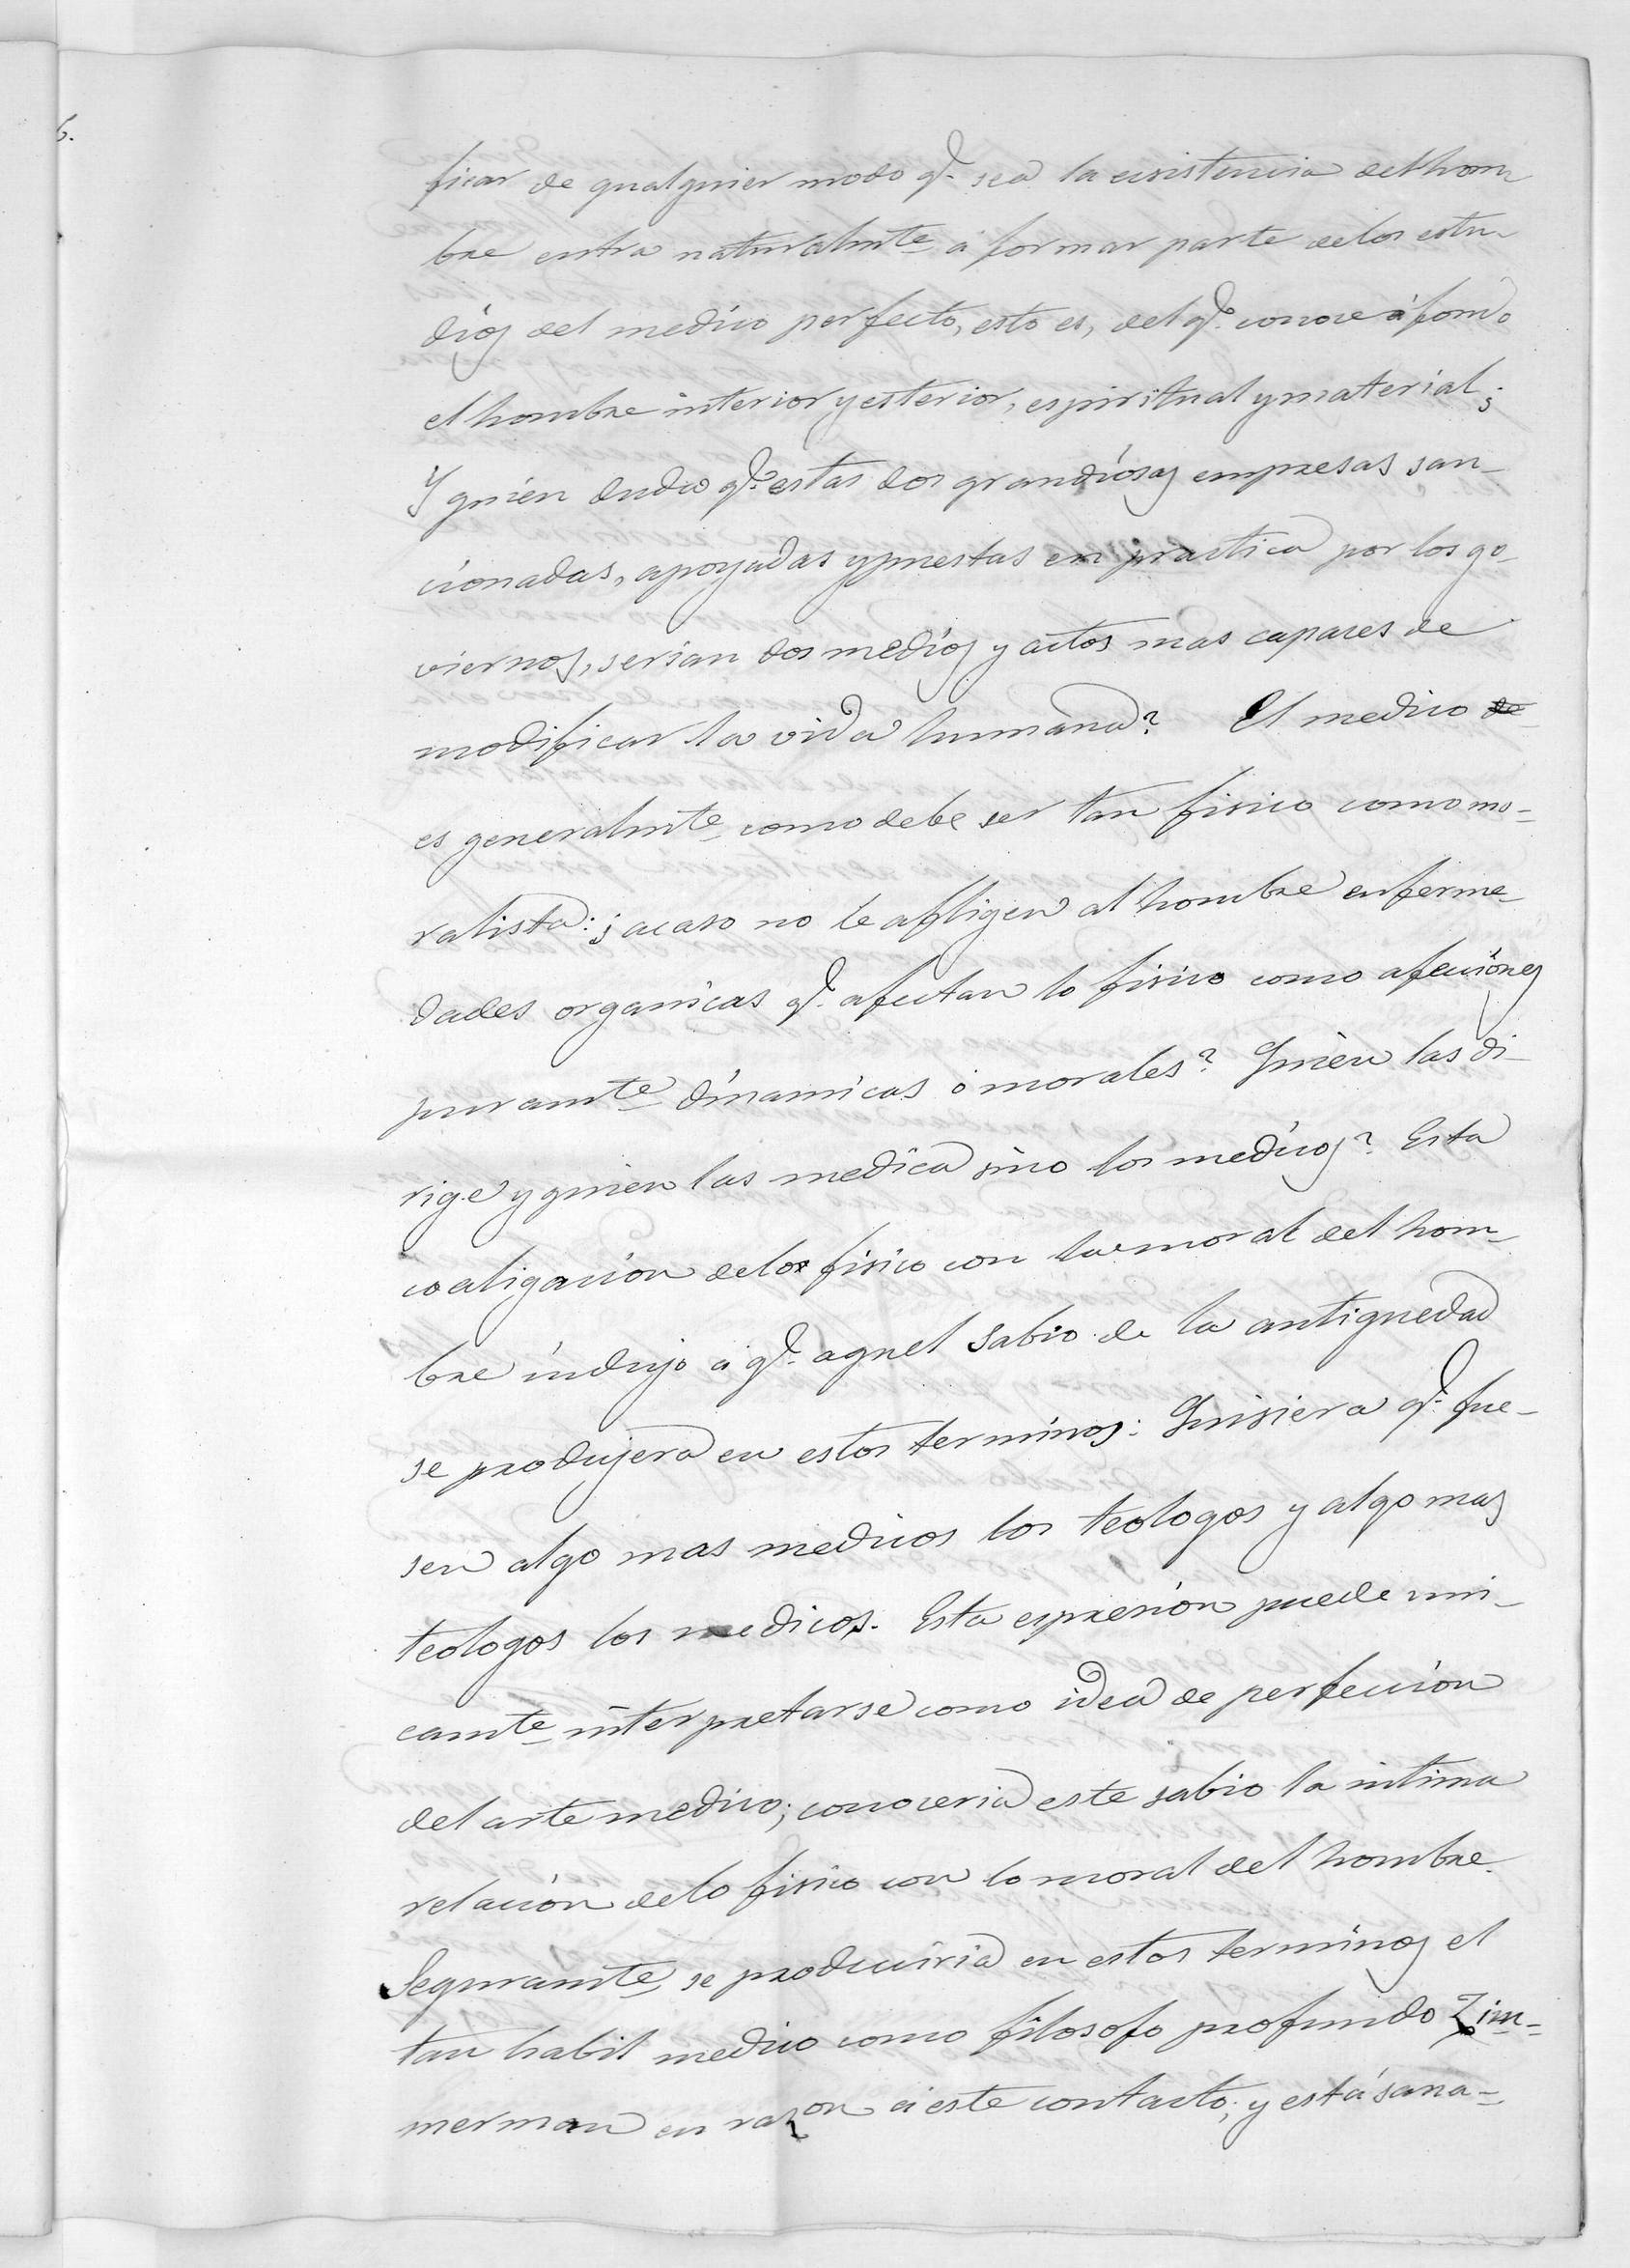 ficar de qualquier modo q.e sea la ecsistencia del hom
bre entra naturalmte á formar parte delos estu-
dios del medico perfecto, esto es, del q.e conoce á fondo
el hombre interior y esterior, espiritual y material;
Y quien duda q.e estas dos grandiosas empresas san-
cionadas, apoyadas y puestas en practica por los go-
viernos, serian dos medios y actos mas capaces de
modificar la vida humana? El medico de
es generalmte como debe ser tan fisico como mo=
ralista: ¿acaso no le afligen al hombre enferme-
dades organicas q.e afectan lo fisico como afecciones
puramte dinamicas ó morales? Quién las di-
rige y quien las medica sino los medicos? Esta
coaligacion delo fisico con la moral del hom-
bre indujo á q.e aquel sabio de la antiguedad
se produjera en estos terminos: Quisiera q.e fue-
sen algo mas medicos los teologos y algo mas
teologos los medicos. Esta espresion puede uni-
camte interpretarse como idea de perfeccion
del arte medico; conoceria este sabio la intima
relacion delo fisico con lo moral del hombre.
Seguramte se produciria en estos terminos el
tan habil medico como filosofo profundo Zim=
merman en razon á este contacto; y está sana=